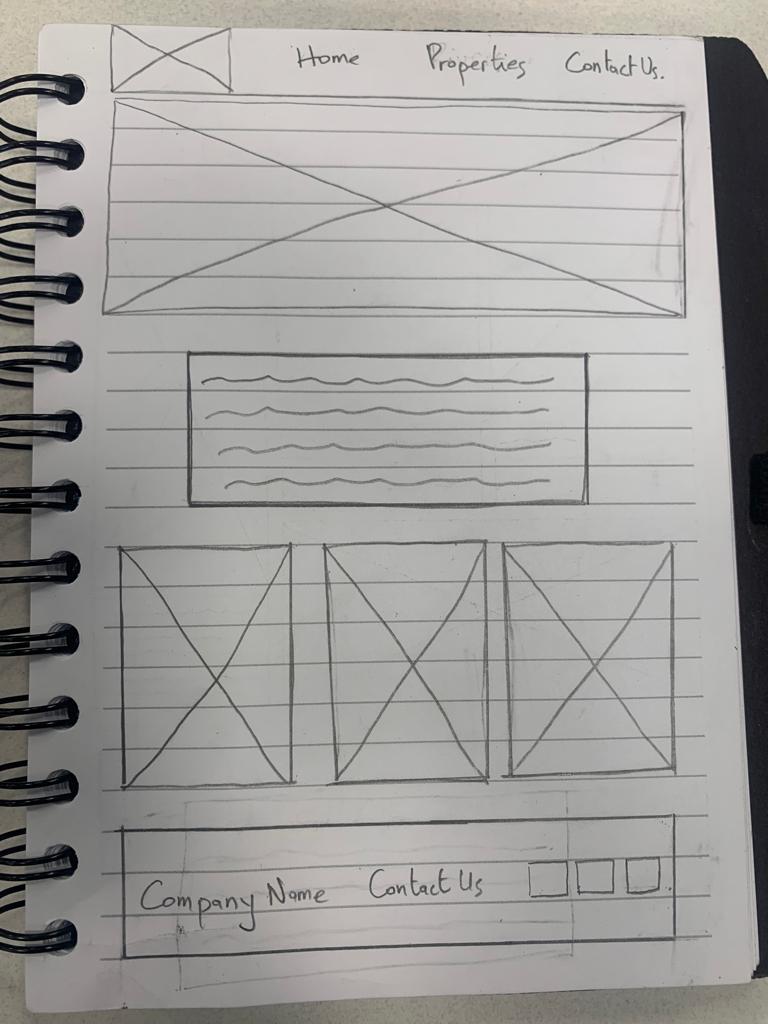 Home Properties Contact Us.
Company Name Contact Us